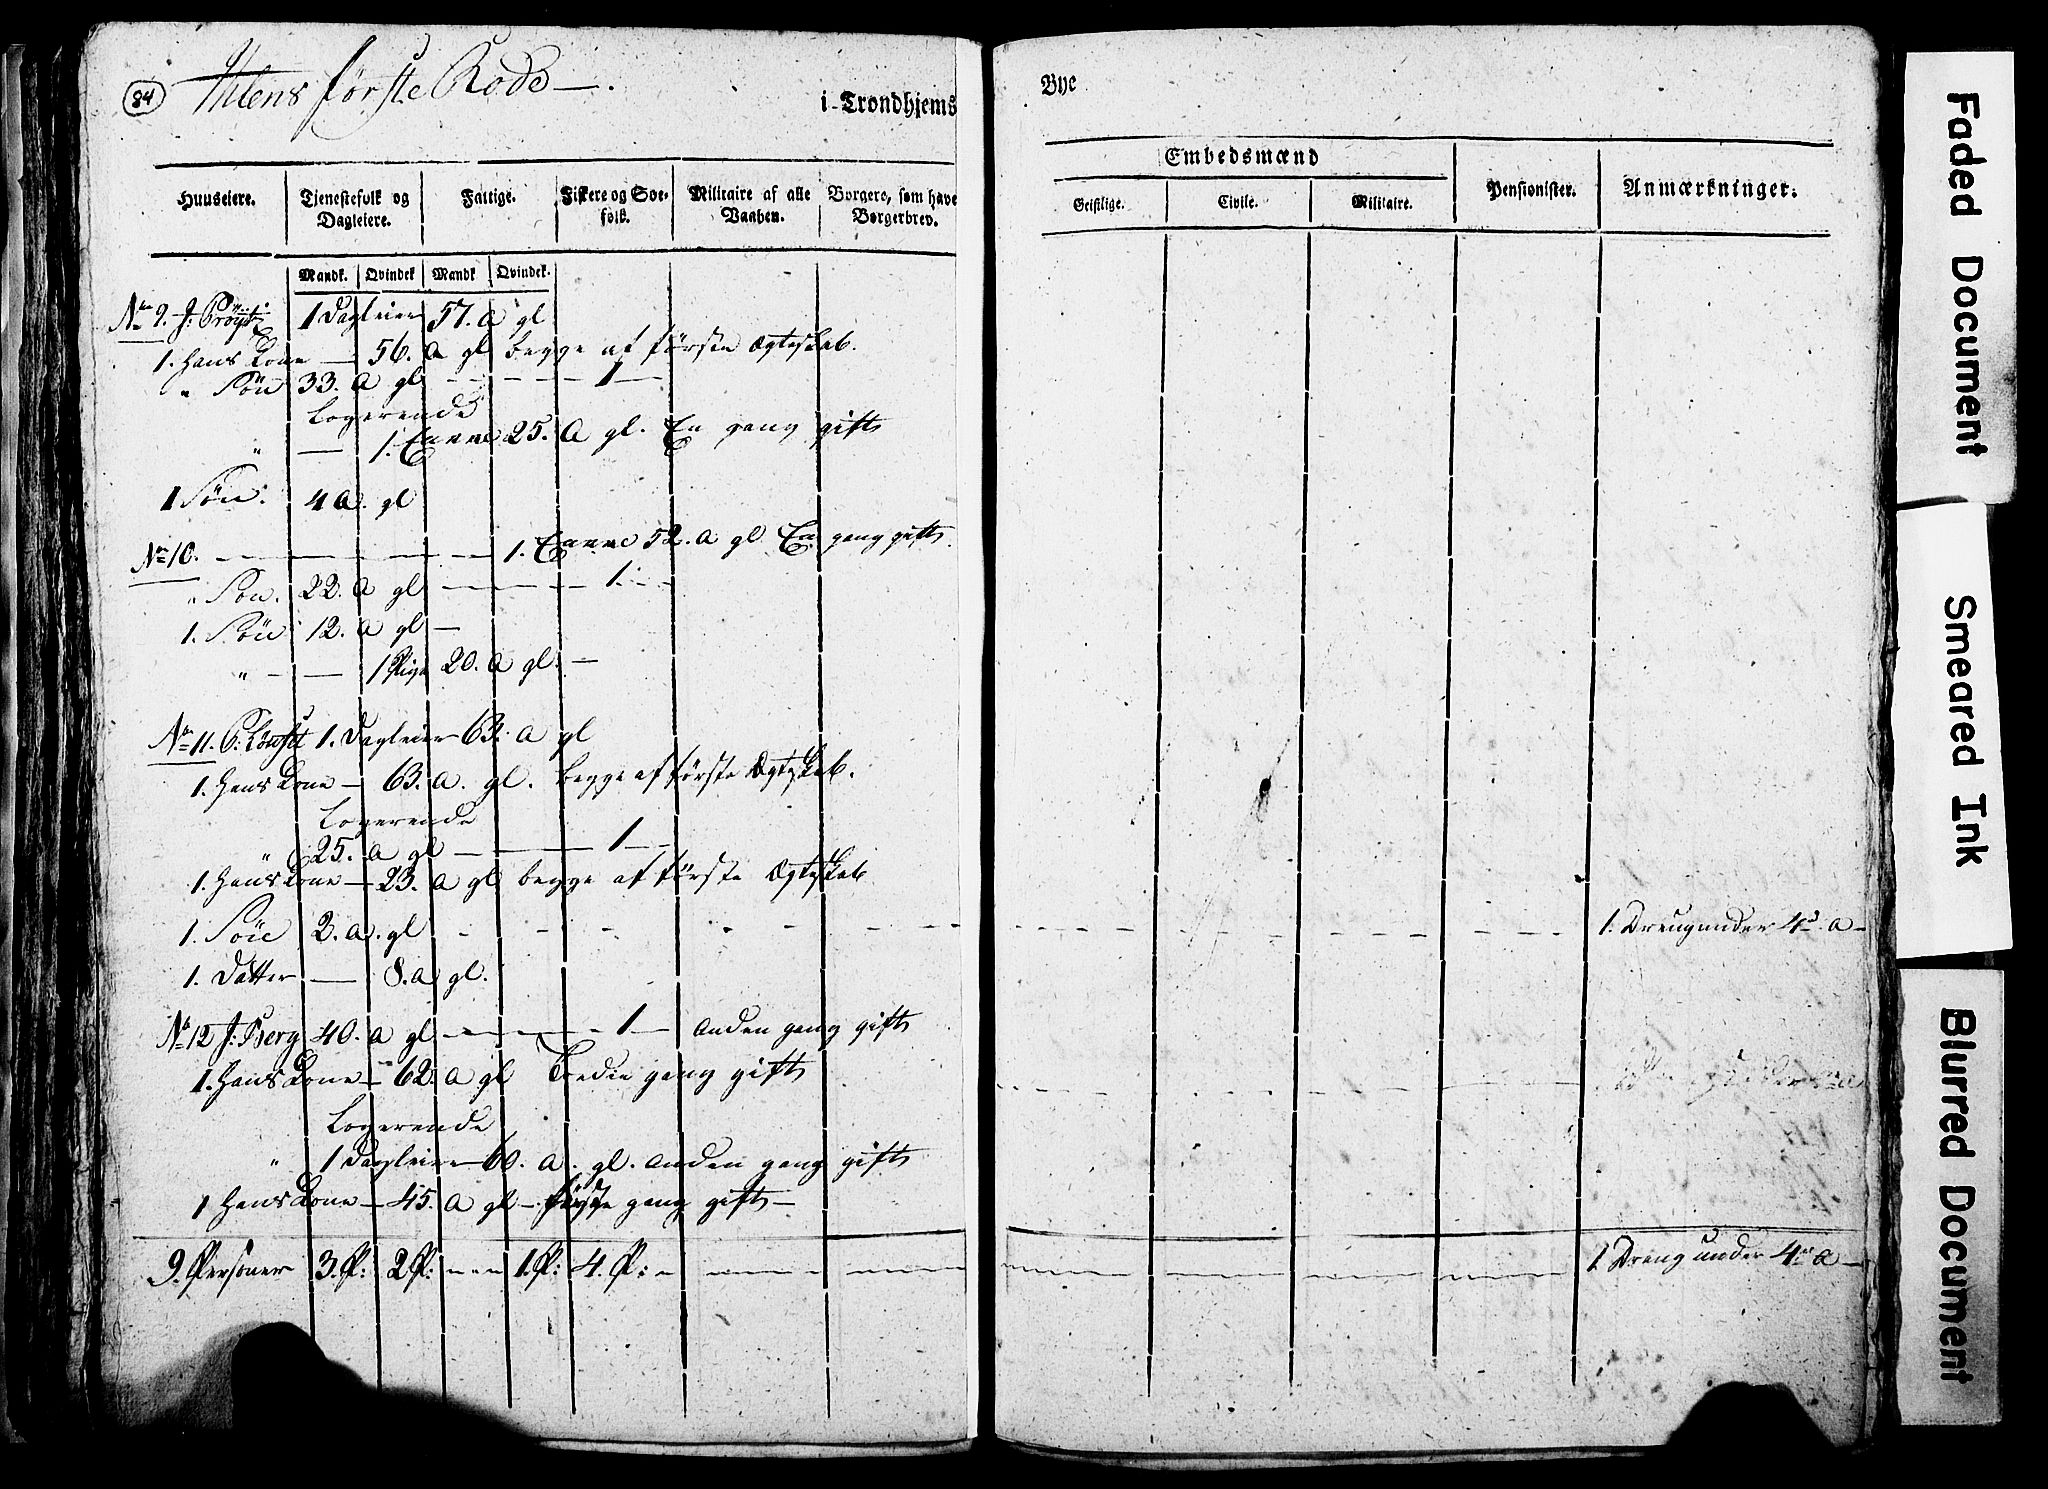 84
Ihlens første Rode
i Trondhjems Bye
Embedsmænd
Huuseiere. Tjenestefolk og Dagleiere. Fattige. Fiskere og Søefolk. Militaire af alle Vaaben. Borgere, som have Borgerbrev. Geistlige. Civile. Militaire. Pensionister. Anmærkninger.
Mandk. Qvindek Mandk Qvindek.
No 9. J: 1 Dagleier 57. a gl
1. Hans Kone — 56. a gl begge af første Ægteskab.
" Søn 33. a gl - - - - 1 —
Logerende
" — 1. Encke 25. a gl. En gang gift
1 Søn. 4 a. gl
No 10. — — — — 1. Encke 52. a gl En gang gift
" Søn. 22. a gl — — — 1. —
1. Søn 12. a gl —
" - — 1 Pige 20. a gl. —
No 11. P. 1. Dagleier 63. a gl
1. Hans Kone — 63. a. gl. begge af første Ægteskab.
Logerende
" 25. a gl — — 1 —
1. Hans Kone — 23. a gl begge af første Ægteskab
1. Søn 2. a. gl - - - - - - 1. Dreng under 4 a —
1. Datter — 8. a gl.
No 12 J: Berg 40. a gl — — — 1 — anden gang gift
1. Hans Kone — 62. a gl Tredie gang gift
Logerende
" 1 Dagleier 60. a. gl. anden gang gift
1 Hans Kone — 45. a gl — første gang gift —
9. Personer 3. P: 2 P: - - - 1. P: 4. P: - — — — 1 Dreng under 4 a —
Faded Document
Smeared Ink
Blurred Document